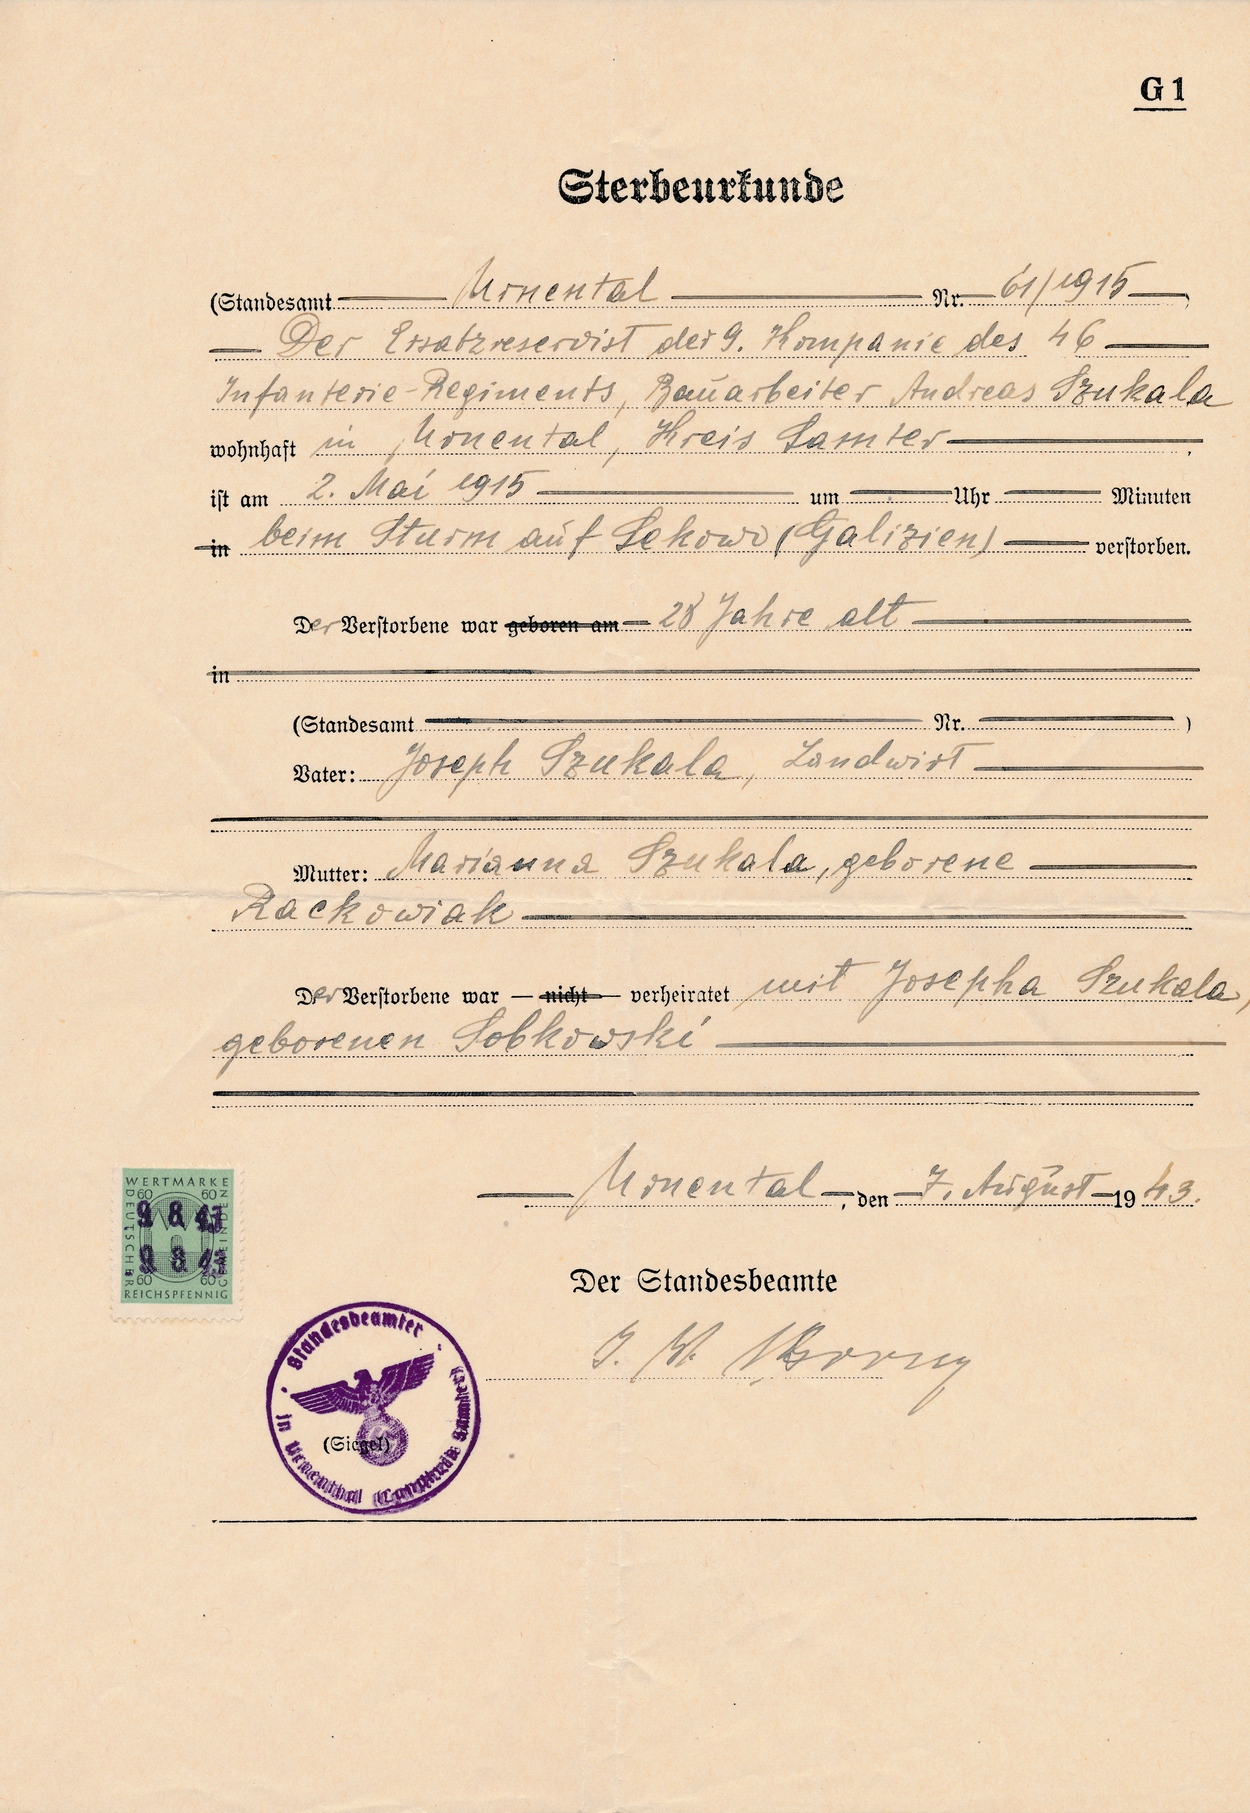 G 1
Sterbeurkunde
(Standesamt Urnental Nr. 61/1915
Der Ersatzreservist der 9. Kompanie des 46
Infanterie-Regiments, Bauarbeiter Andreas Szukala
wohnhaft in Urnental, Kreis Samter
ist am 2. Mai 1915 um Uhr Minuten
in beim Sturm auf Sekowo (Galizien) verstorben.
Der Verstorbene war geboren am 28 Jahre alt
in
(Standesamt Nr. )
Vater: Joseph Szukala, Landwirt
Mutter: Marianna Szukala, geborene
Rackowiak
Der Verstorbene war — nicht — verheiratet mit Josepha Szukala,
geborenen Sobkowski
Urnental, den 7. August 1943.
WERTMARKE
DEUTSCHER
GEMEINDEN
60 60
9 8 43
9 8 43
60 60
REICHSPFENNIG
Der Standesbeamte
J. V.
Standesbeamter
in Urnenthal (Landkreis Samter)
(Siegel)